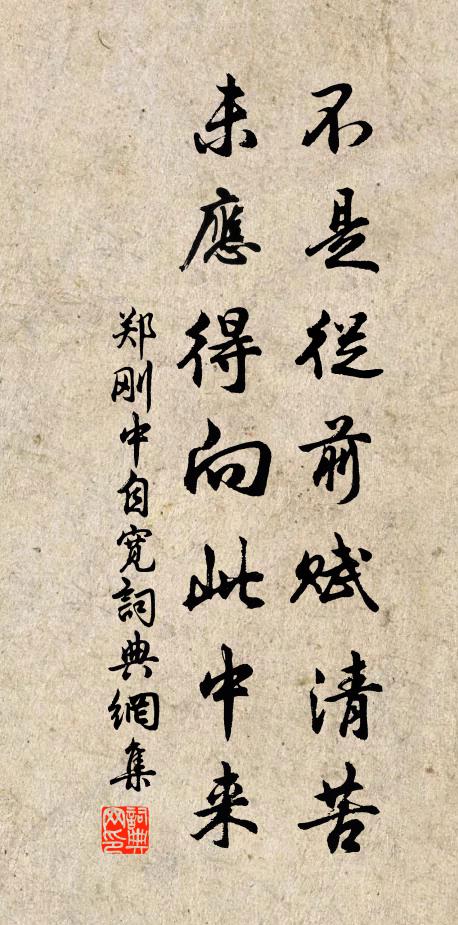 不是從前賦清苦
未應得向此中来
郑刚中自寬詞典網集
詞典網印